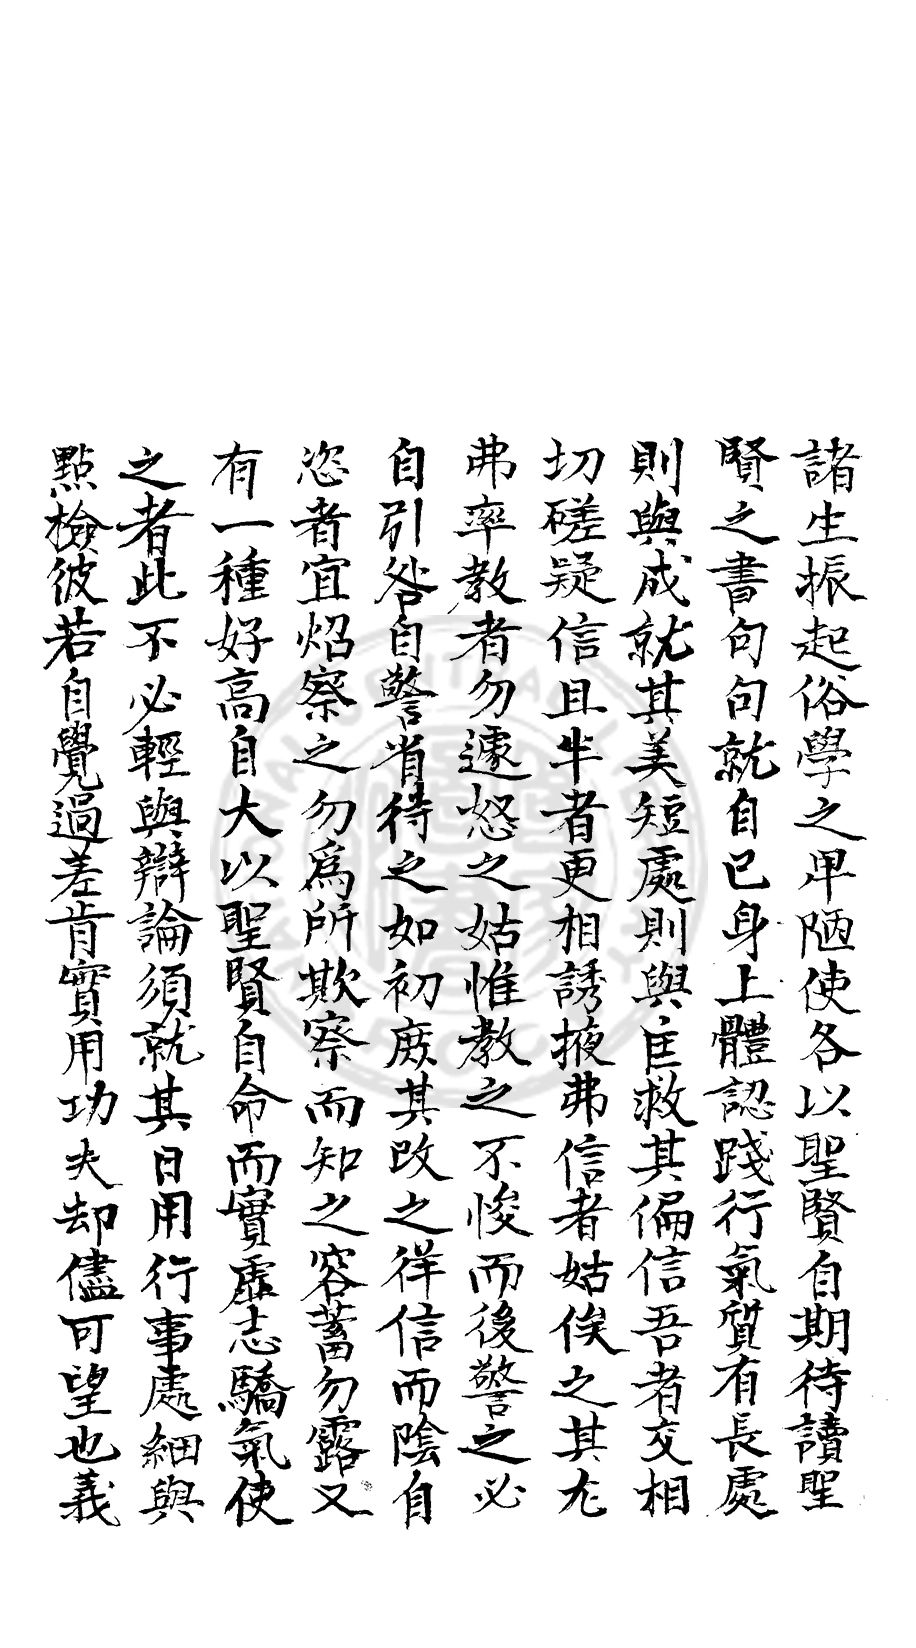 諸生振起俗學之卑陋使各以聖賢自期待讀聖
賢之書句句就自已身上體認踐行氣質有長處
則與成就其美短處則與匡救其偏信吾者交相
切磋疑信且半者更相誘掖弗信者姑俟之其尤
弗率教者勿遽怒之姑惟教之不悛而後警之必
自引咎自警省待之如初庶其改之徉信而陰自
恣者宜炤察之勿為所欺察而知之容蓄勿露又
有一種好高自大以聖賢自命而實虛志驕氣使
之者此不必輕與辯論須就其日用行事處細與
點檢彼若自覺過差肯實用功夫却儘可望也義